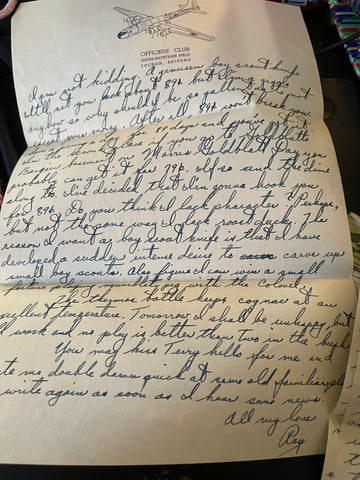 OFFICERS' CLUB
DAVIS-MONTHAN FIELD
TUCSON, ARIZONA
I am not kidding. A genuine boy scout knife
still set you back about 89¢, but I'm
anyhow so why should I be so gallant
cost any more. After all 89¢ won't break you
in the for 89 days and you've got it
Bargain basement, Morris Goldblatt Goldblatts
probably can get it for 79¢. If so send the dime
along too. I've decided that I'm gonna hook you
for 89¢. Do you think I lack character? Perhaps,
but not the same way I lack roast duck. The
reason I want a boy scout knife is that I have
developed a sudden intense desire to carve up
small boy scouts. Also figure I can win a small
playing mumblety peg with the colonel.
The thermos bottle keeps cognac at an
excellent temperature. Tomorrow I shall be unhappy, but
all work and no play is better than two in the bush.
You may kiss Terry hello for me and
write me double damn quick at same old familiar place
write again as soon as I hear some news.
All my love
Ray